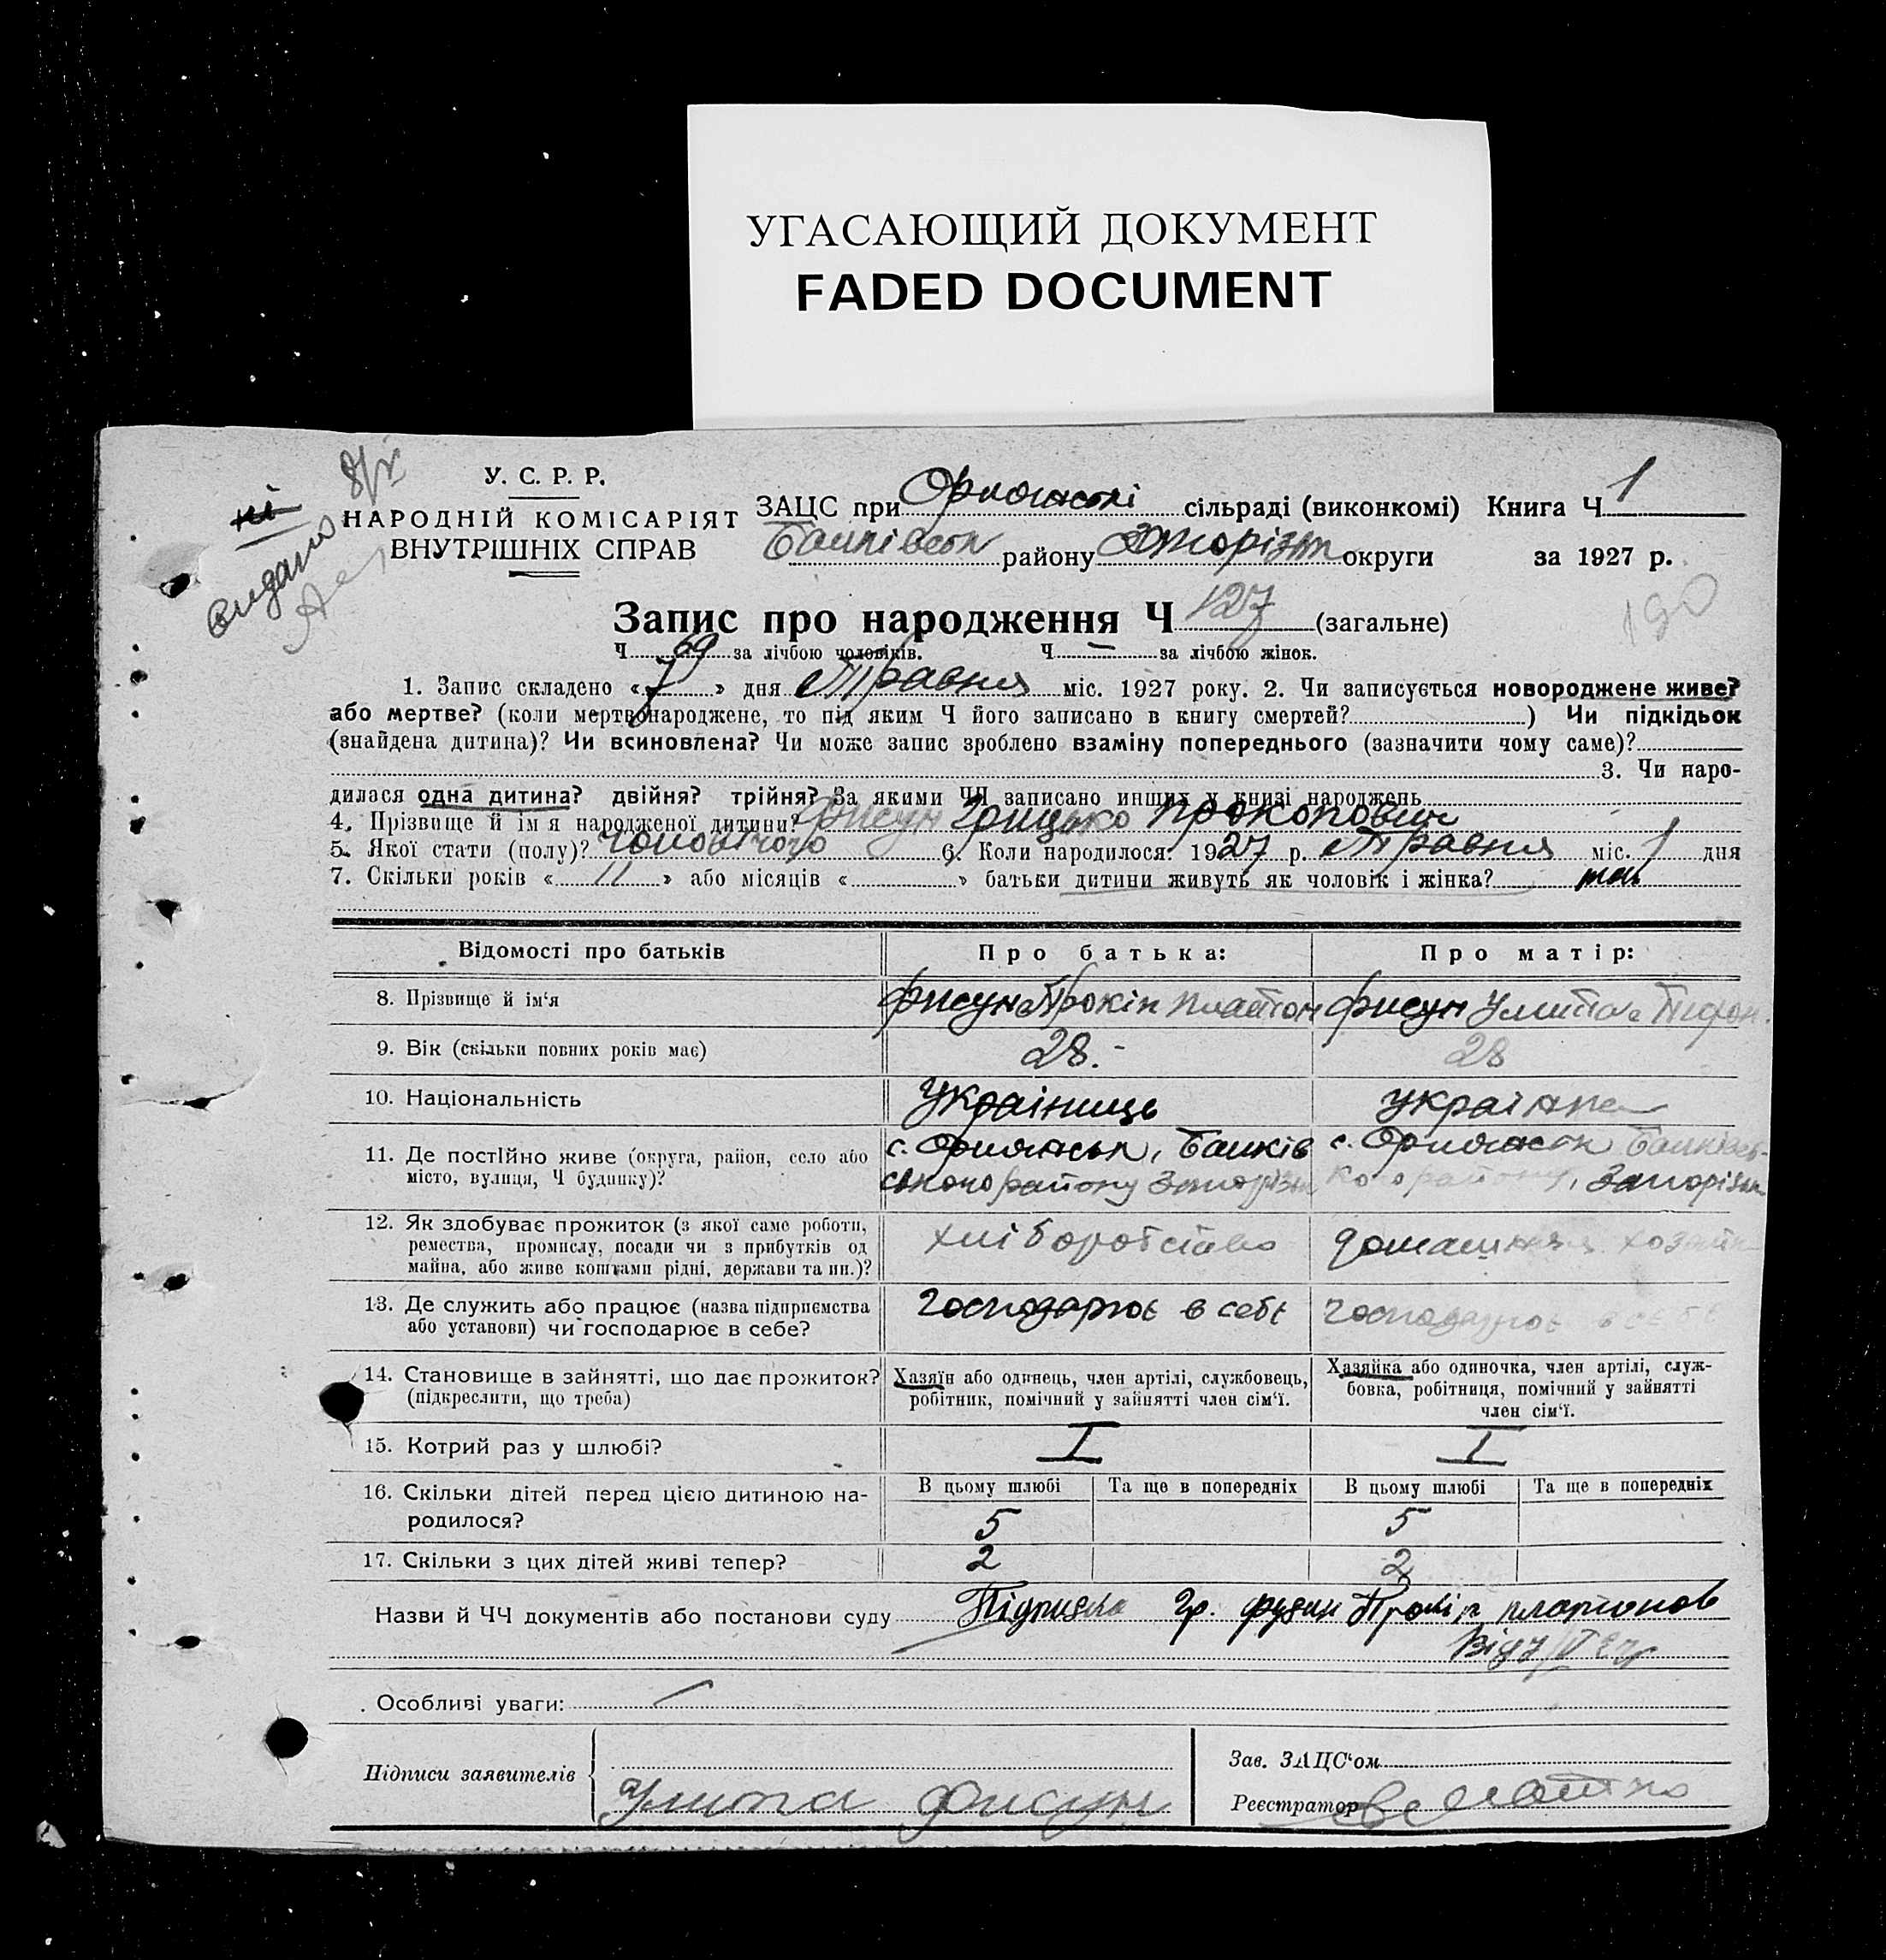 УГАСАЮЩИЙ ДОКУМЕНТ
FADED DOCUMENT
видано
У. С. Р. Р.
НАРОДНІЙ КОМІСАРІЯТ
ВНУТРІШНІХ СПРАВ
ЗАЦС при сільраді (виконкомі) Книга Ч 1
району округи за 1927 р.
Запис про народження Ч 127 (загальне)
190
Ч 69 за лічбою чоловіків. Ч — за лічбою жінок.
1. Запис складено « 7 » дня Травня міс. 1927 року. 2. Чи записується новороджене живе?
або мертве? (коли мертвонароджене, то під яким Ч його записано в книгу смертей? ) Чи підкідьок
(знайдена дитина)? Чи всиновлена? Чи може запис зроблено взаміну попереднього (зазначити чому саме)?
3. Чи наро-
дилася одна дитина? двійня? трійня? За якими ЧЧ записано инших у книзі народжень
4. Прізвище й ім'я народженої дитини? Фисун Грицько Прокопович
5. Якої стати (полу)? чоловічого 6. Коли народилося: 1927 р. Травня міс. 1 дня
7. Скільки років « 11 » або місяців « » батьки дитини живуть як чоловік і жінка? так
Відомості про батьків Про батька: Про матір:
8. Прізвище й ім'я Фисун Прокіп Платон Фисун Улита
9. Вік (скільки повних років має) 28. - 28
10. Національність Українець українка
11. Де постійно живе (округа, район, село або
місто, вулиця, Ч будинку)?
12. Як здобуває прожиток (з якої саме роботи,
ремества, промислу, посади чи з прибутків од
майна, або живе коштами рідні, держави та ин.)?
хліборобство домашня
13. Де служить або працює (назва підприємства
або установи) чи господарює в себе?
господарює в себе господарює в себе
14. Становище в зайнятті, що дає прожиток?
(підкреслити, що треба)
Хазяїн або одинець, член артілі, службовець,
робітник, помічний у зайнятті член сім'ї.
Хазяйка або одиночка, член артілі, служ-
бовка, робітниця, помічний у зайнятті
член сім'ї.
15. Котрий раз у шлюбі? I I
16. Скільки дітей перед цією дитиною на-
родилося?
В цьому шлюбі Та ще в попередніх В цьому шлюбі Та ще в попередніх
5 5
17. Скільки з цих дітей живі тепер? 2 2
Назви й ЧЧ документів або постанови суду Підписка гр. Прокіп Платонов
Особливі уваги:
Підписи заявителів
Улита Фисун
Зав. ЗАЦС'ом
Реєстратор